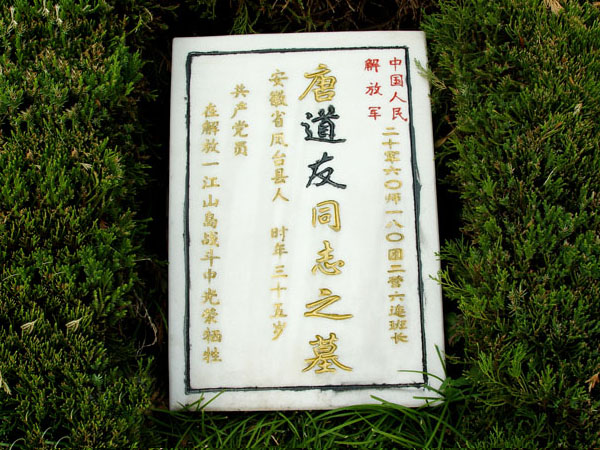 中国人民
解放军
二十军六〇师一八〇团二营六连班长
唐道友同志之墓
安徽省凤台县人 时年三十五岁
共产党员
在解放一江山岛战斗中光荣牺牲